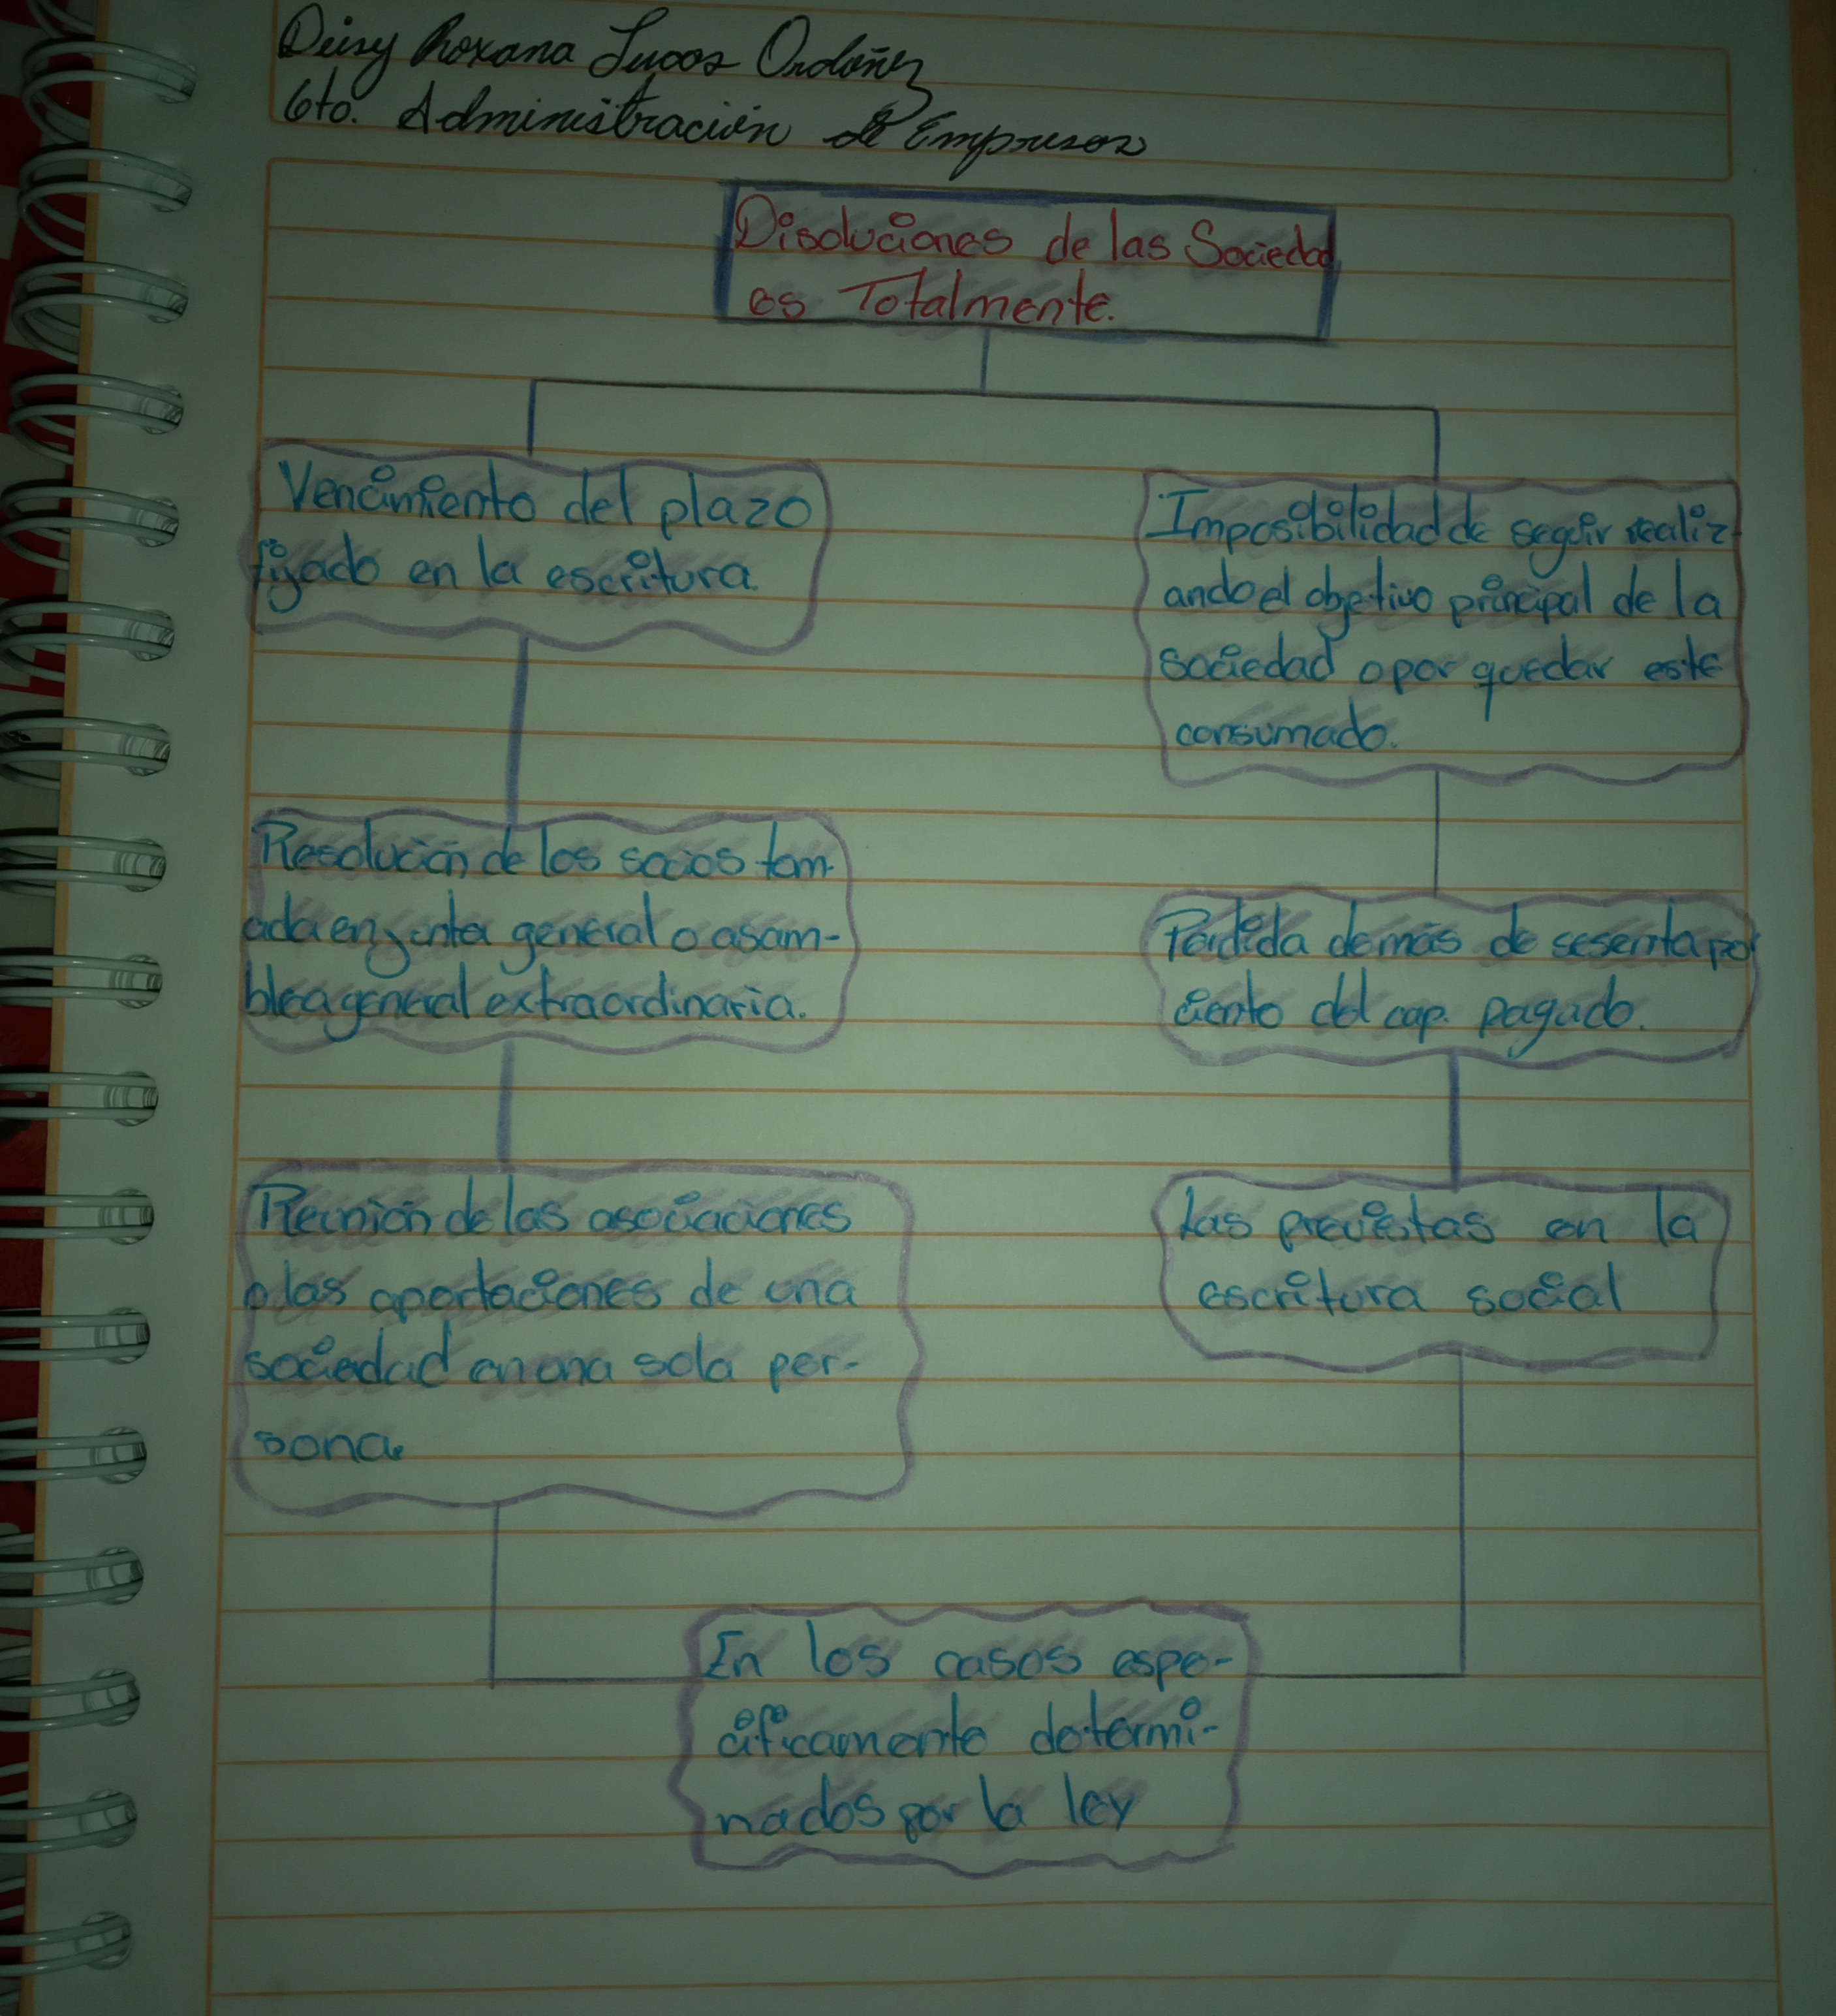 Deisy Roxana Lucas Ordóñez
6to. Administración de Empresas
Disoluciones de las Sociedad
es Totalmente.
Vencimiento del plazo
fijado en la escritura.
Imposibilidad de seguir realiz-
ando el objetivo principal de la
sociedad o por quedar este
consumado.
Resolución de los socios tom-
ada en junta general o asam-
blea general extraordinaria.
Perdida de más de sesenta por
ciento del cap. pagado.
Reunión de las asociaciones
o las aportaciones de una
sociedad en una sola per-
sona.
Las previstas en la
escritura social
En los casos espe-
cificamente determi-
nados por la ley